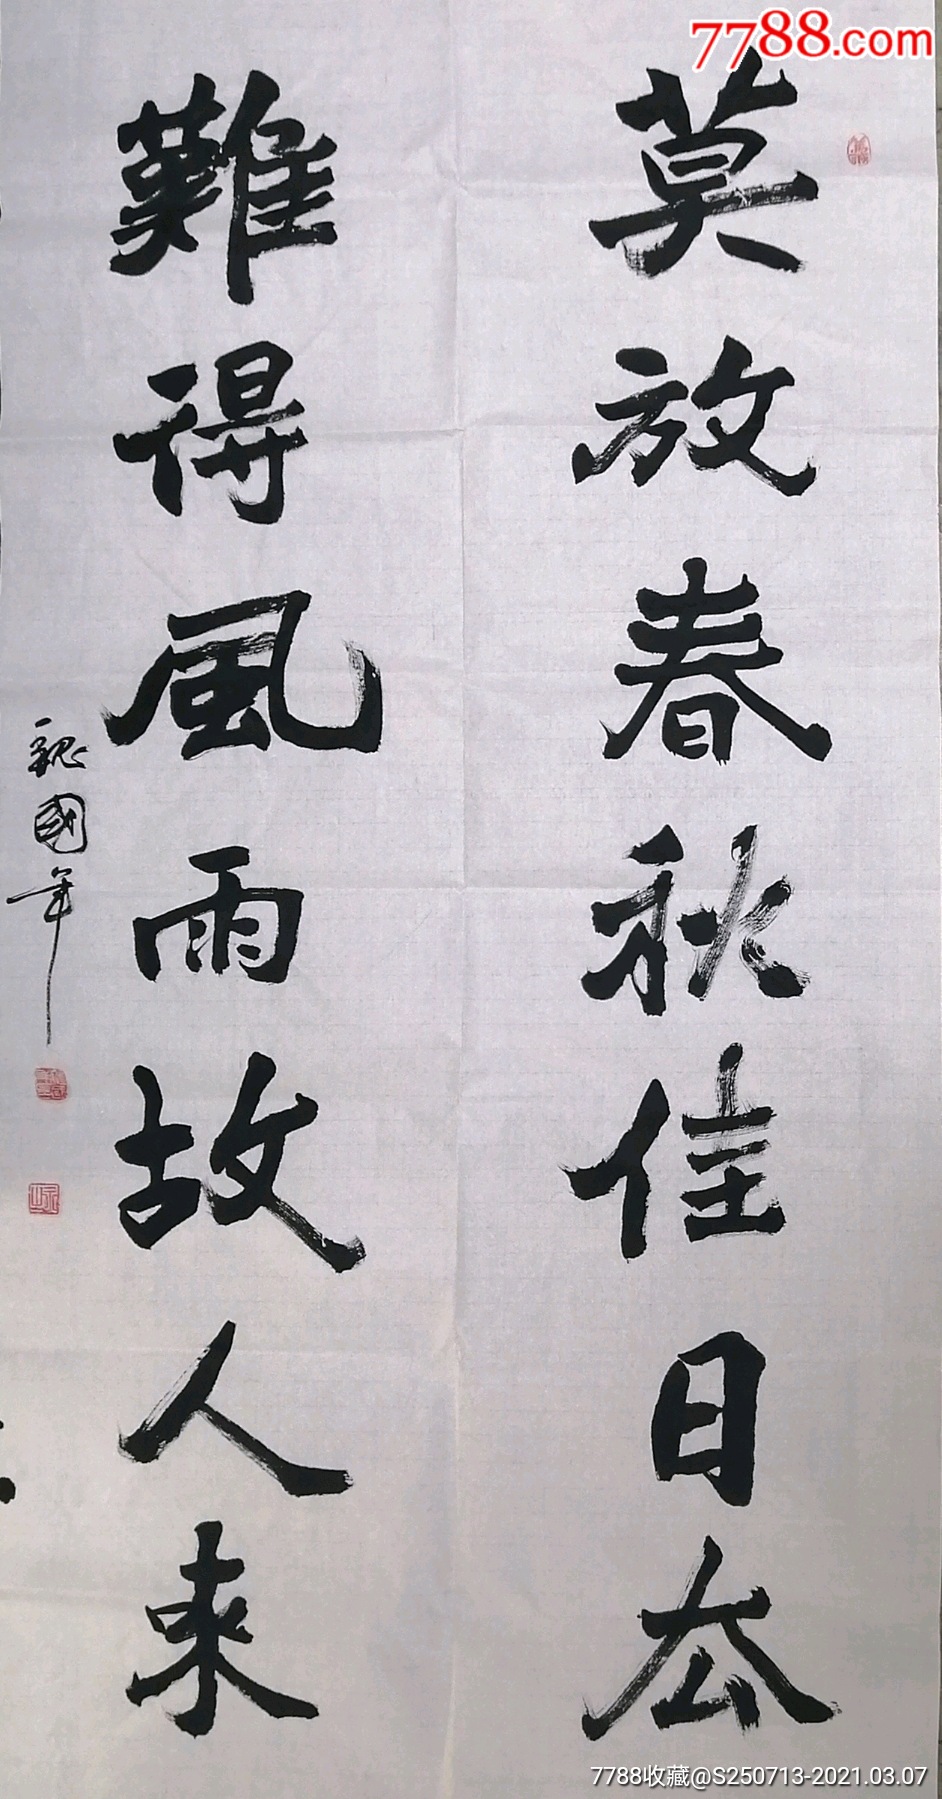 7788.com
莫放春秋佳日去
難得風雨故人来
魏國年
7788收藏@S250713-2021.03.07